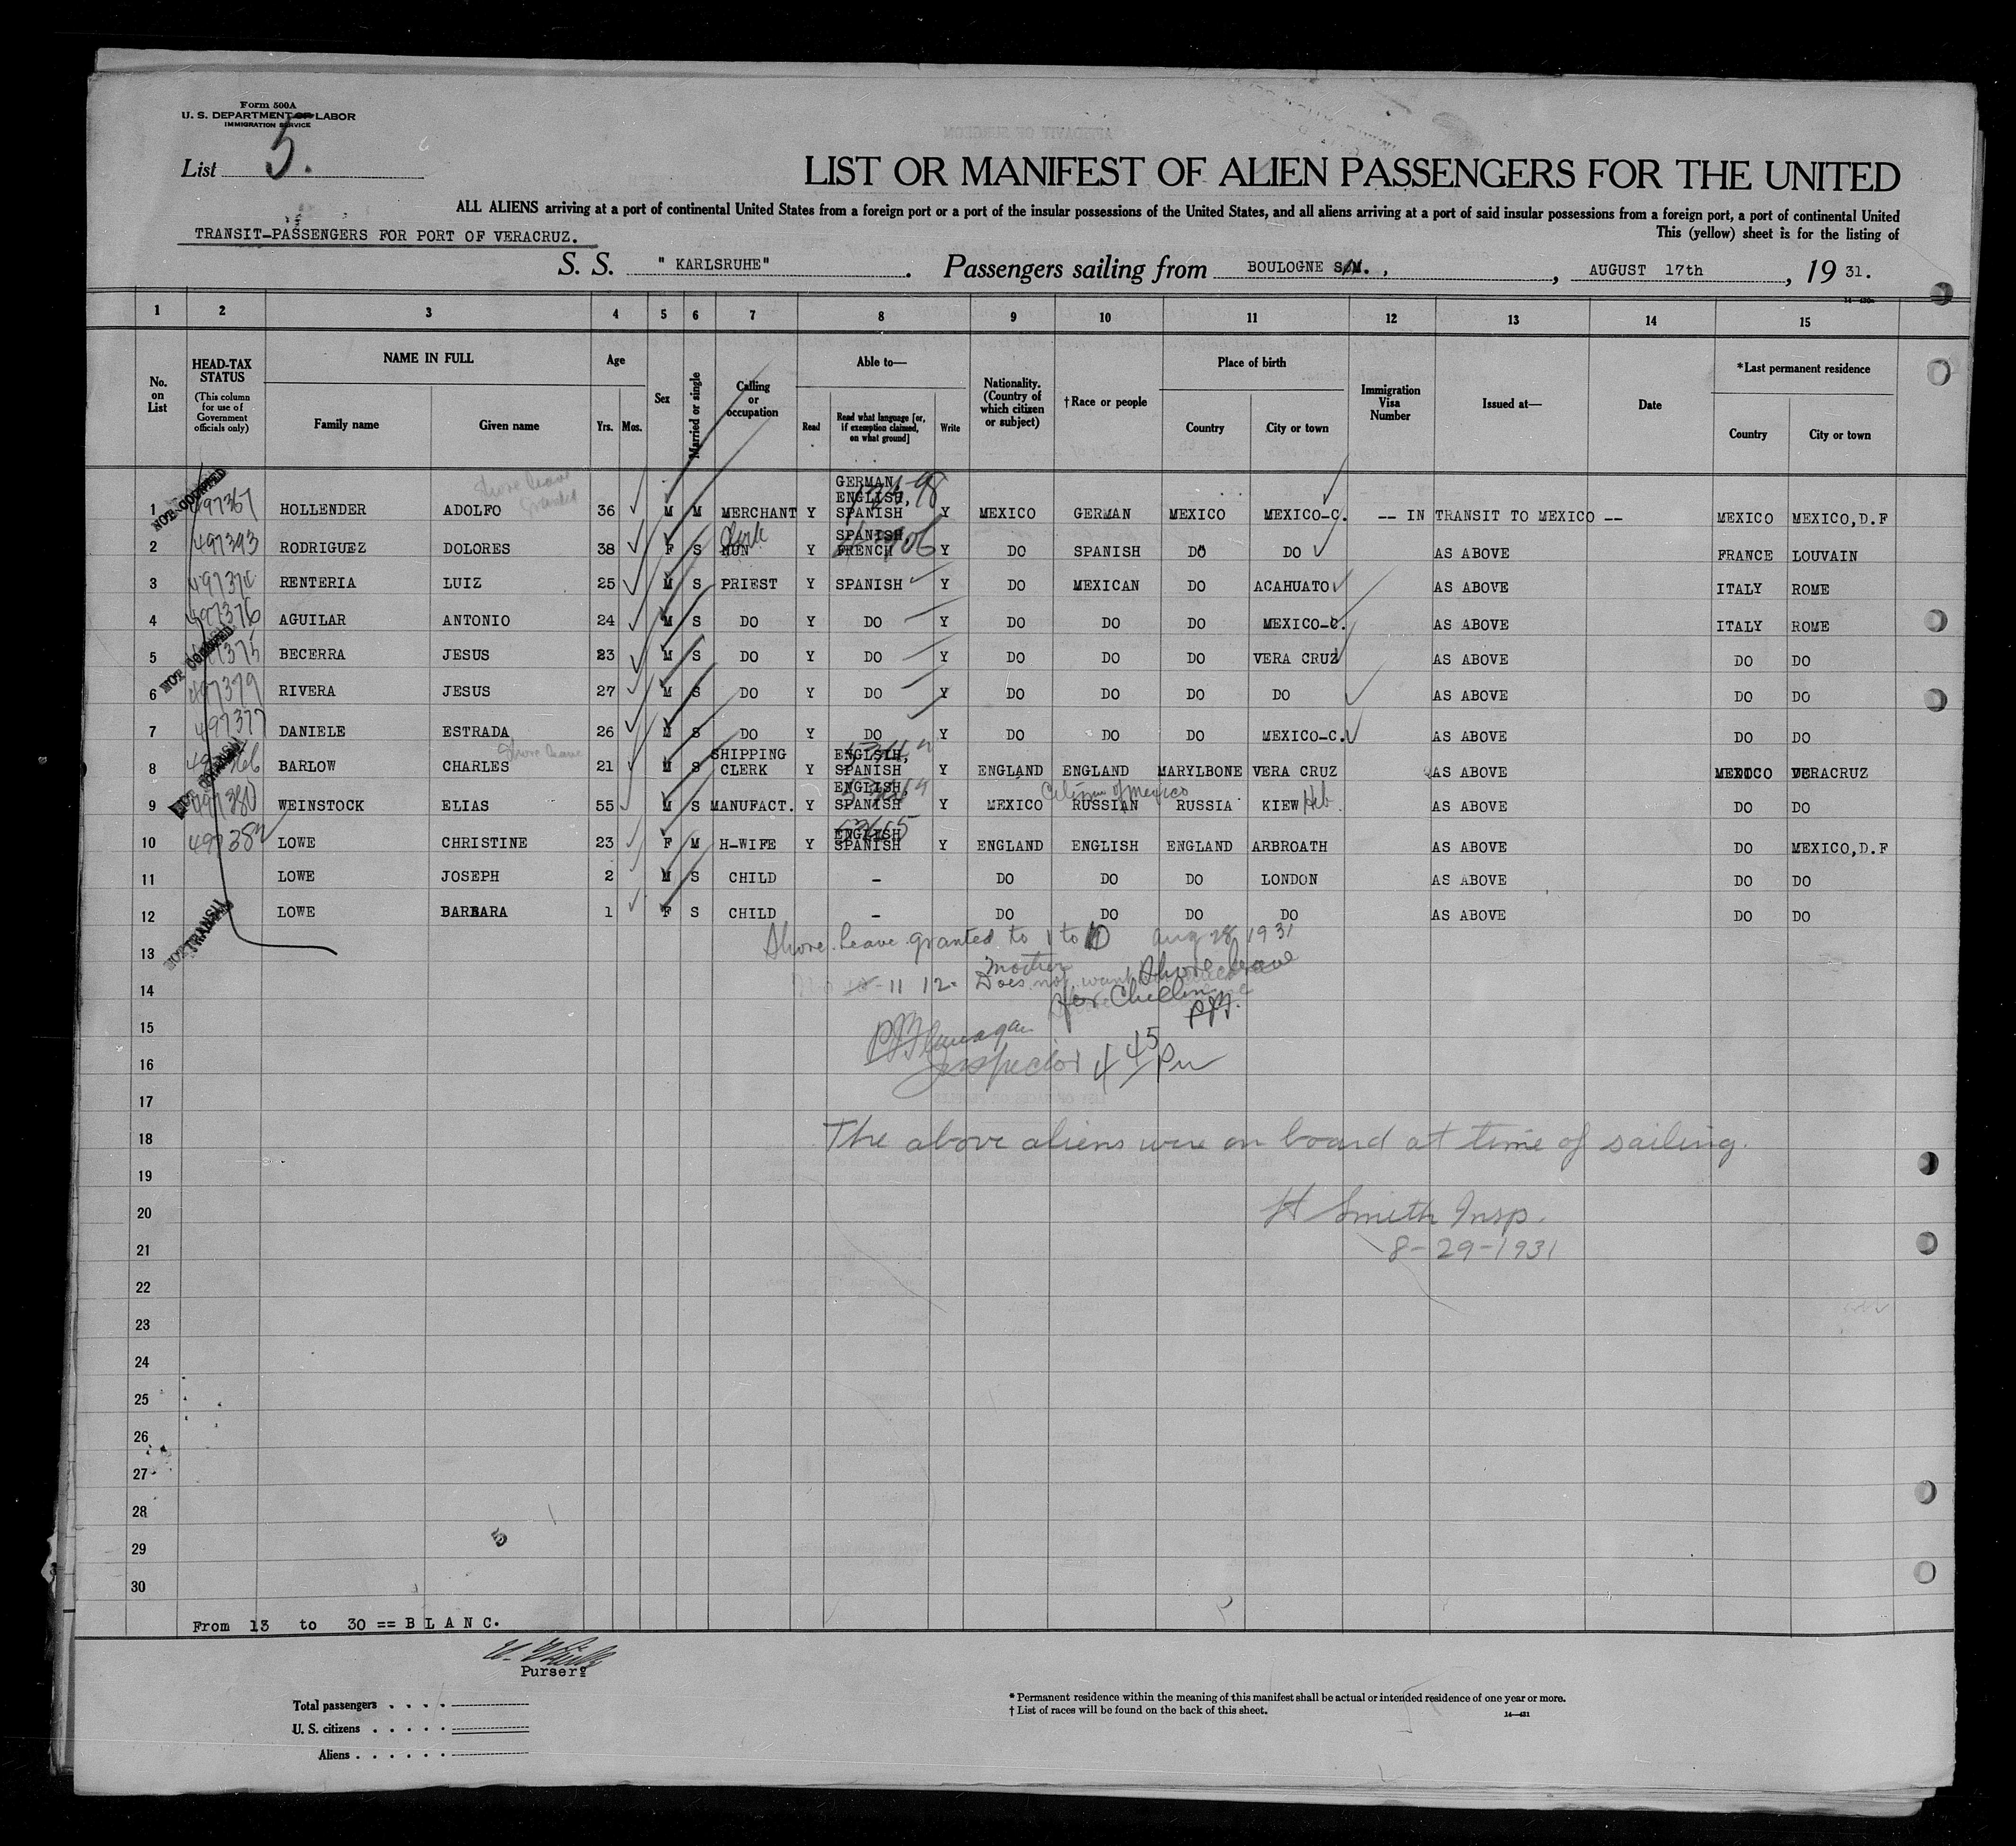 Form 500A
U. S. DEPARTMENT OF LABOR
IMMIGRATION SERVICE
List 5.
LIST OR MANIFEST OF ALIEN PASSENGERS FOR THE UNITED
ALL ALIENS arriving at a port of continental United States from a foreign port or a port of the insular possessions of the United States, and all aliens arriving at a port of said insular possessions from a foreign port, a port of continental United
TRANSIT-PASSENGERS FOR PORT OF VERACRUZ.
This (yellow) sheet is for the listing of
S. S. " KARLSRUHE" . Passengers sailing from BOULOGNE S/M. , , AUGUST 17th , 19 31.
1 2 3 4 5 6 7 8 9 10 11 12 13 14 15
No. on List
HEAD-TAX STATUS
(This column for use of Government officials only)
NAME IN FULL
Family name Given name
Age
Yrs. Mos.
Sex
Married or single
Calling or occupation
Able to—
Read
Read what language [or, if exemption claimed, on what ground]
Write
Nationality. (Country of which citizen or subject)
†Race or people
Place of birth
Country City or town
Immigration Visa Number
Issued at—
Date
*Last permanent residence
Country City or town
Shore leave Granted
1 497367 HOLLENDER ADOLFO 36 M M MERCHANT Y GERMAN, ENGLISH, SPANISH Y MEXICO GERMAN MEXICO MEXICO-C. -- IN TRANSIT TO MEXICO -- MEXICO MEXICO,D.F
2 497393 RODRIGUEZ DOLORES 38 F S NUN Clerk Y SPANISH FRENCH Y DO SPANISH DO DO AS ABOVE FRANCE LOUVAIN
3 RENTERIA LUIZ 25 M S PRIEST Y SPANISH Y DO MEXICAN DO ACAHUATO AS ABOVE ITALY ROME
4 497376 AGUILAR ANTONIO 24 M S DO Y DO Y DO DO DO MEXICO-C. AS ABOVE ITALY ROME
5 497375 BECERRA JESUS 23 M S DO Y DO Y DO DO DO VERA CRUZ AS ABOVE DO DO
6 497379 RIVERA JESUS 27 M S DO Y DO Y DO DO DO DO AS ABOVE DO DO
7 497377 DANIELE ESTRADA 26 M S DO Y DO Y DO DO DO MEXICO-C. AS ABOVE DO DO
Shore leave
8 BARLOW CHARLES 21 M S SHIPPING CLERK Y ENGLSIH, SPANISH Y ENGLAND ENGLAND MARYLBONE VERA CRUZ AS ABOVE MEXICO VERACRUZ
Citizen of Mexico
9 497380 WEINSTOCK ELIAS 55 M S MANUFACT. Y ENGLISH SPANISH Y MEXICO RUSSIAN RUSSIA KIEW Heb. AS ABOVE DO DO
10 497382 LOWE CHRISTINE 23 F M H-WIFE Y ENGLISH SPANISH Y ENGLAND ENGLISH ENGLAND ARBROATH AS ABOVE DO MEXICO,D.F
11 LOWE JOSEPH 2 M S CHILD - DO DO DO LONDON AS ABOVE DO DO
12 LOWE BARBARA 1 F S CHILD - DO DO DO DO AS ABOVE DO DO
NOT COUNTED
NOT COUNTED
TRANSIT
Shore leave granted to 1 to 10 Aug 28, 1931
13
11 12- Mother Does not want Shore leave
14
for Children
PJF.
15
PJ Flanagan
16
Inspector 4 45 Pm
17
18
The above aliens were on board at time of sailing.
19
20
H Smith Insp.
21
8-29-1931
22
23
24
25
26
27
28
29
5
30
From 13 to 30 == B L A N C.
Purser
Total passengers . . . .
U. S. citizens . . . . .
Aliens . . . . . .
* Permanent residence within the meaning of this manifest shall be actual or intended residence of one year or more.
† List of races will be found on the back of this sheet.
14—431